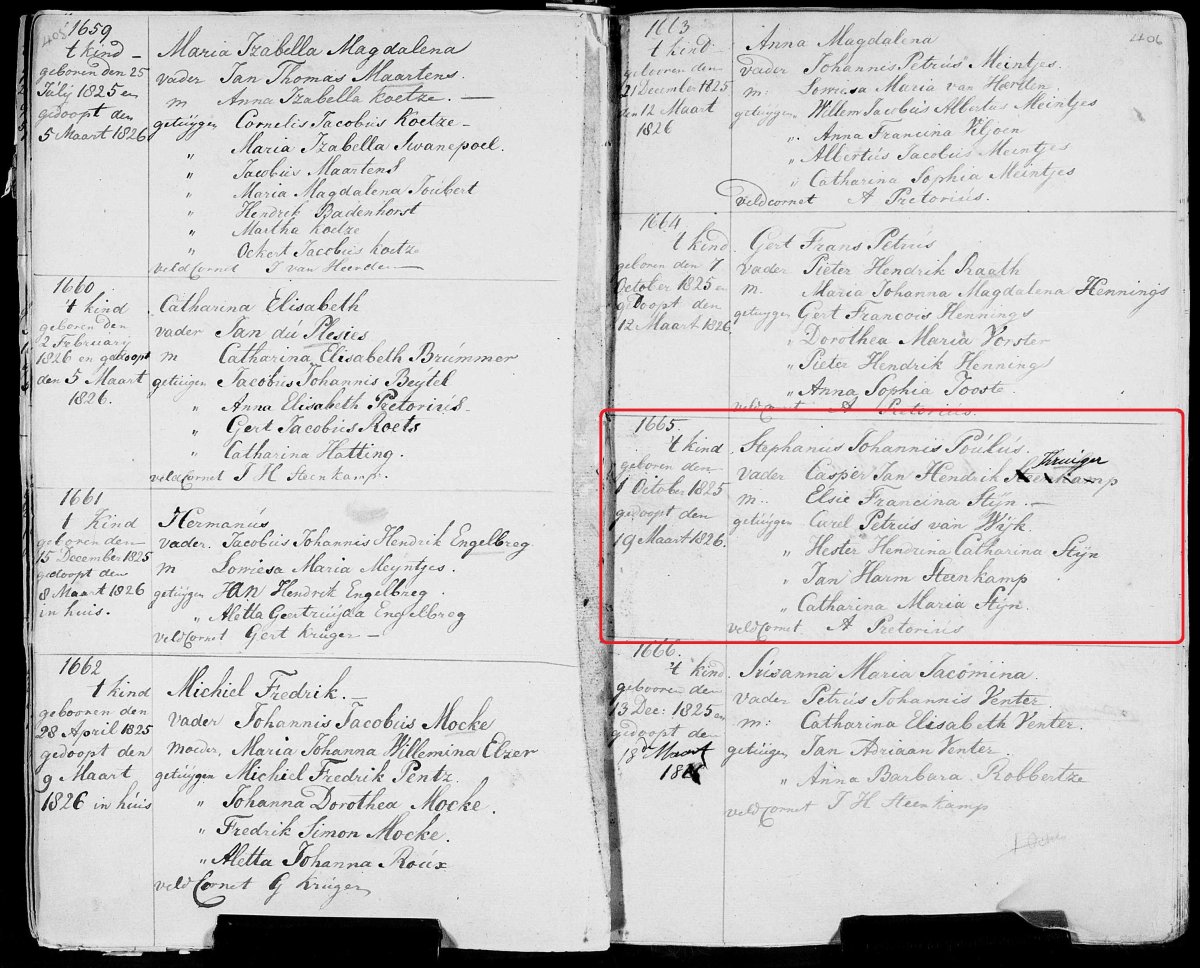 408
1659
't kind
geboren den 25
Julij 1825 en
gedoopt den
5 Maart 1826
Maria Izabella Magdalena
vader Jan Thomas Maartens
m Anna Izabella Koetze. —
getuijgen Cornelis Jacobus Koetze —
„ Maria Izabella Swanepoel.
„ Jacobus Maartens
„ Maria Magdalena Joubert
„ Hendrik Badenhorst
„ Martha Koetze
„ Ockert Jacobus Koetze
veldCornet J van Heerden —
1660
't kind
geboren den
2 February
1826 en gedoopt
den 5 Maart
1826.
Catharina Elisabeth
vader Jan dú Plesies
m Catharina Elisabeth Brúmmer
getuigen Jacobus Johannis Beijtel
„ Anna Elisabeth Pretoriús
„ Gert Jacobus Roets
„ Catharina Hatting.
veldCornet J H Steenkamp.
1661
't Kind
geboren den
15 December 1825
gedoopt den
8 Maart 1826
in huis.
Hermanús
vader. Jacobus Johannis Hendrik Engelbreg
m Lowiesa Maria Meijntjes.
getuijgen Jan Hendrik Engelbreg.
„ Aletta Geertruijda Engelbreg
veldCornet Gert Krúger —
1662
't kind
gebooren den
28 April 1825
gedoopt den
9 Maart
1826 in húis
Michiel Fredrik. —
vader Johannis Jacobús Mocke
moeder, Maria Johanna Willemina Elzer
getúijgen Michiel Fredrik Pentz.
„ Johanna Dorothea Mocke.
„ Fredrik Simon Mocke.
„ Aletta Johanna Roúx
veldCornet G Krúger
406
1663
't kind
geboren den
21 December 1825
den 12 Maart
1826
Anna Magdalena
vader Johannis Petrús Meintjes.
m: Lowiesa Maria van Harsten.
getuijgen Willem Jacobus Albertus Meintjes
„ Anna Francina Viljoen
„ Albertús Jacobús Meintjes
„ Catharina Sophia Meintjes
veldcornet A Pretoriús.
1664
't kind
geboren den 7
October 1825 en
gedoopt den
12 Maart 1826.
Gert Frans Petrús
vader Pieter Hendrik Raath
m. Maria Johanna Magdalena Hennings
getuijgen Gert Francois Hennings
„ Dorothea Maria Vorster
„ Pieter Hendrik Henning
„ Anna Sophia Jooste.
veldCornet A Pretoriús.
1665
't kind
geboren den
1 October 1825
gedoopt den
19 Maart 1826.
Stephanús Johannis Poúlús.
Kruiger
vader Casper Jan Hendrik Steenkamp
m.. Elsie Francina Stijn. —
getúijgen Carel Petrús van Wijk.
„ Hester Hendrina Catharina Stijn
„ Jan Harm Steenkamp
„ Catharina Maria Stijn.
veldCornet A Pretoriús
1666.
't kind
gebooren den
13 Dec: 1825 en
gedoopt den
18 Maart
Súsanna Maria Jacomiina.
vader Petrús Johannis Venter.
m: Catharina Elisabeth Venter.
getuigen Jan Adriaan Venter.
„ Anna Barbara Robbertze
veldCornet J H Steenkamp